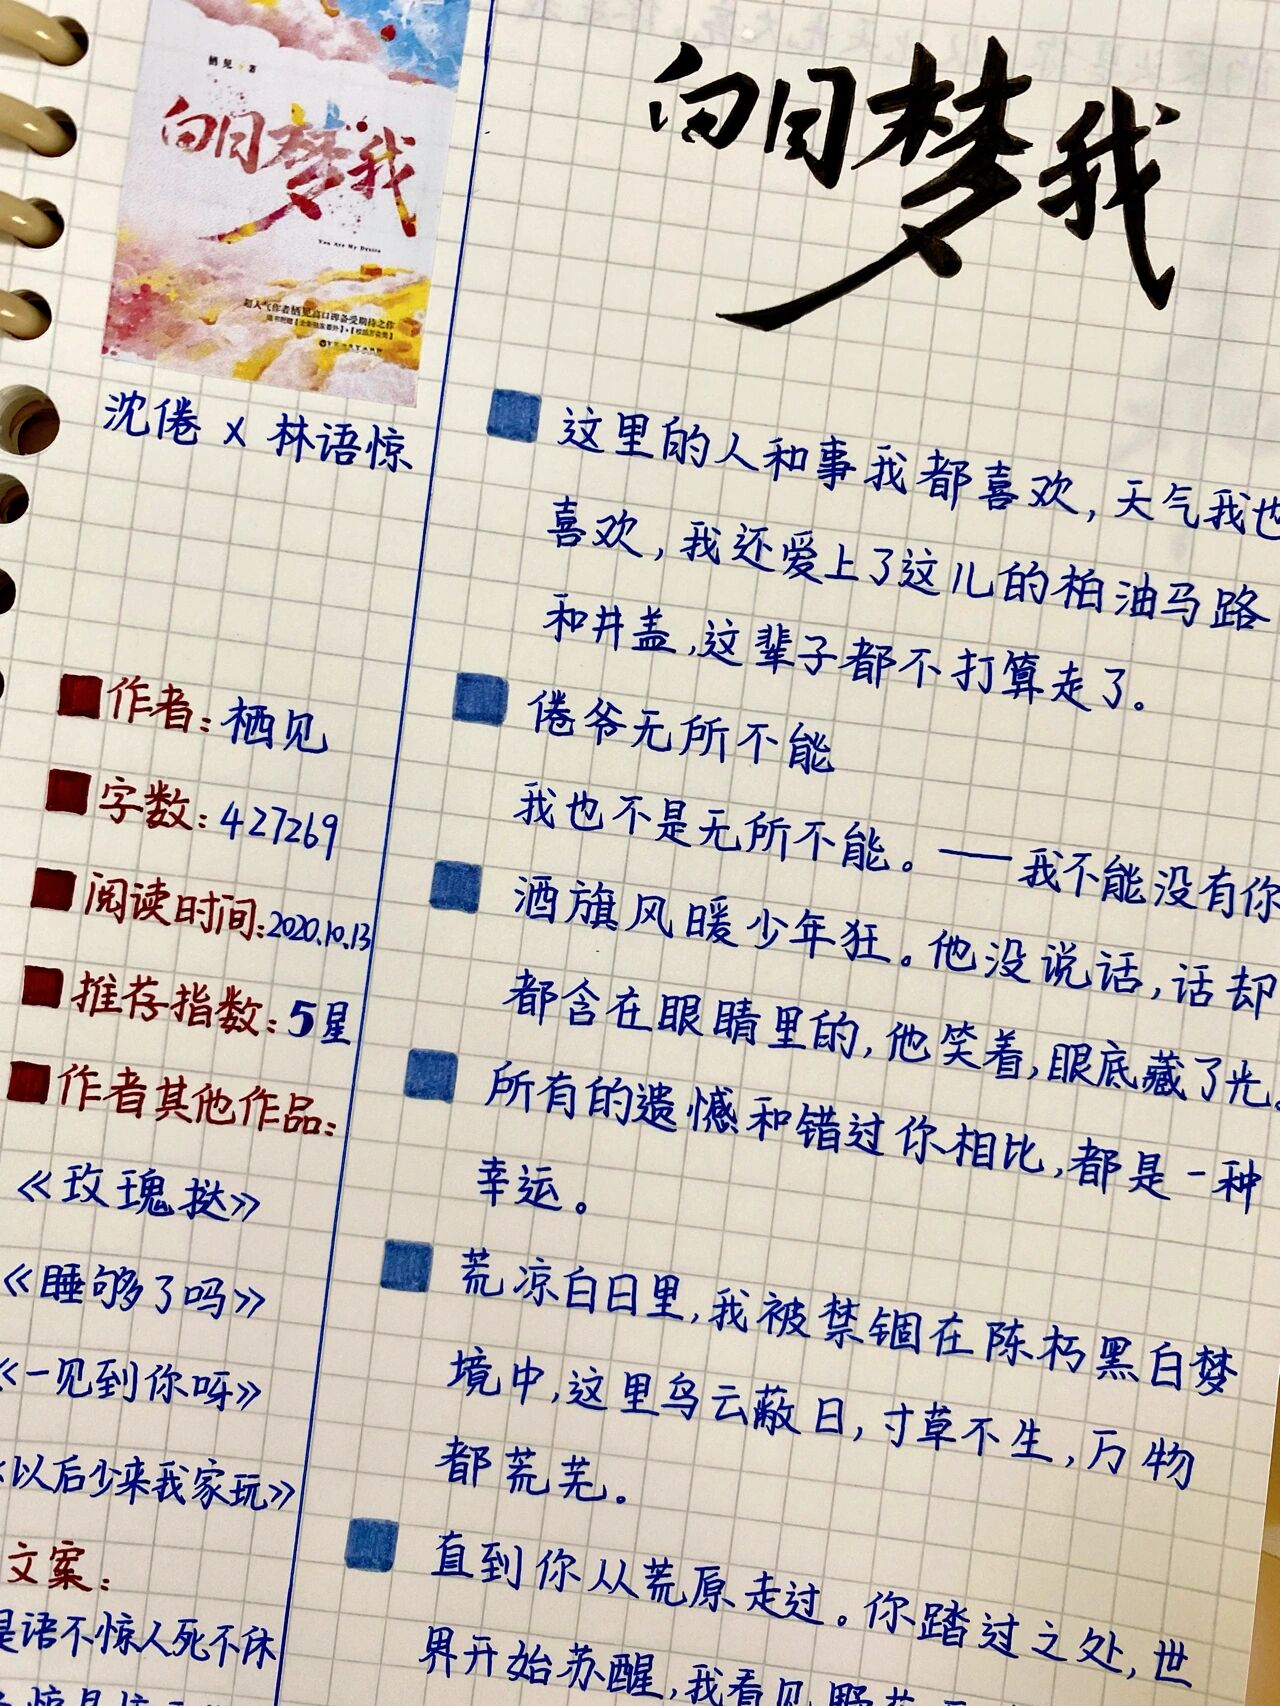 栖见 著
白日梦我
You Are My Desire
超人气作者栖见高口碑备受期待之作
沈倦 x 林语惊
作者：栖见
字数：427269
阅读时间：2020.10.13
推荐指数：5星
作者其他作品：
《玫瑰挞》
《睡够了吗》
《一见到你呀》
《以后少来我家玩》
文案：
是语不惊人死不休
白日梦我
这里的人和事我都喜欢，天气我也
喜欢，我还爱上了这儿的柏油马路
和井盖，这辈子都不打算走了。
倦爷无所不能
我也不是无所不能。——我不能没有你
酒旗风暖少年狂。他没说话，话却
都含在眼睛里的，他笑着，眼底藏了光。
所有的遗憾和错过你相比，都是一种
幸运。
荒凉白日里，我被禁锢在陈朽黑白梦
境中，这里乌云蔽日，寸草不生，万物
都荒芜。
直到你从荒原走过。你踏过之处，世
界开始苏醒，我看见野